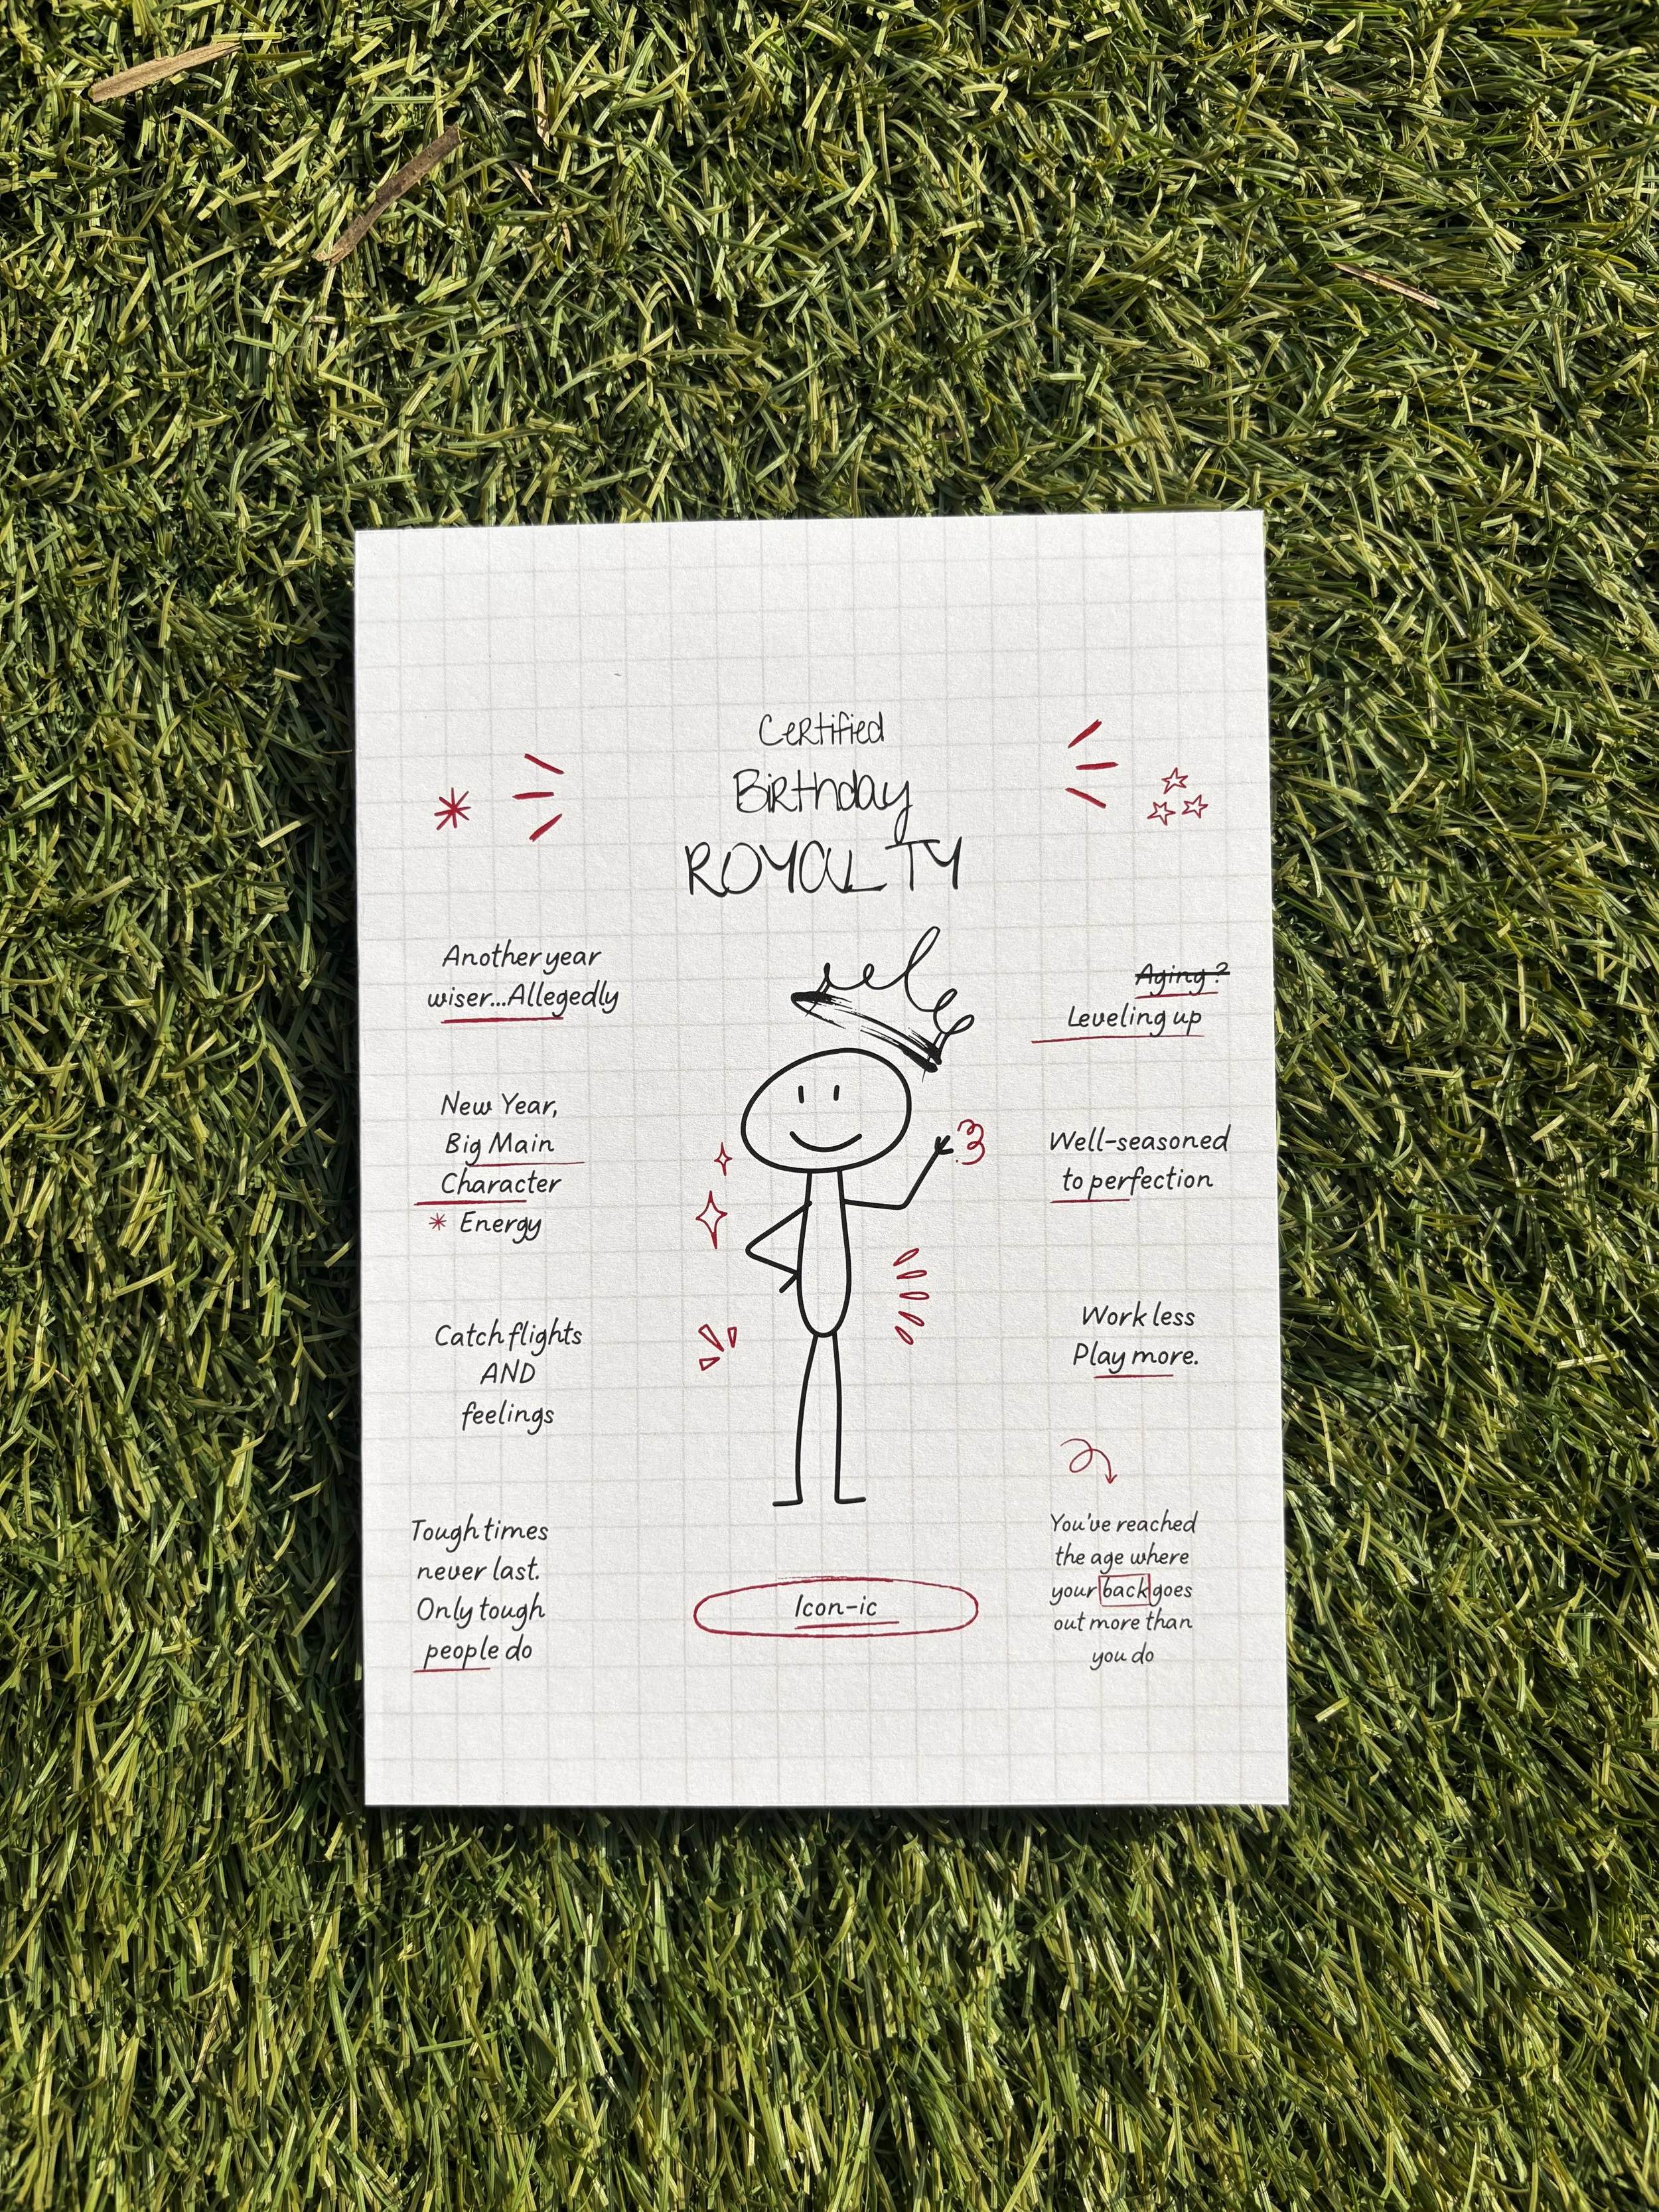 Certified
Birthday
ROYALTY
Another year
wiser...Allegedly
New Year,
Big Main
Character
* Energy
Catch flights
AND
feelings
Tough times
never last.
Only tough
people do
Aging?
Leveling up
Well-seasoned
to perfection
Work less
Play more.
You've reached
the age where
your back goes
out more than
you do
Icon-ic